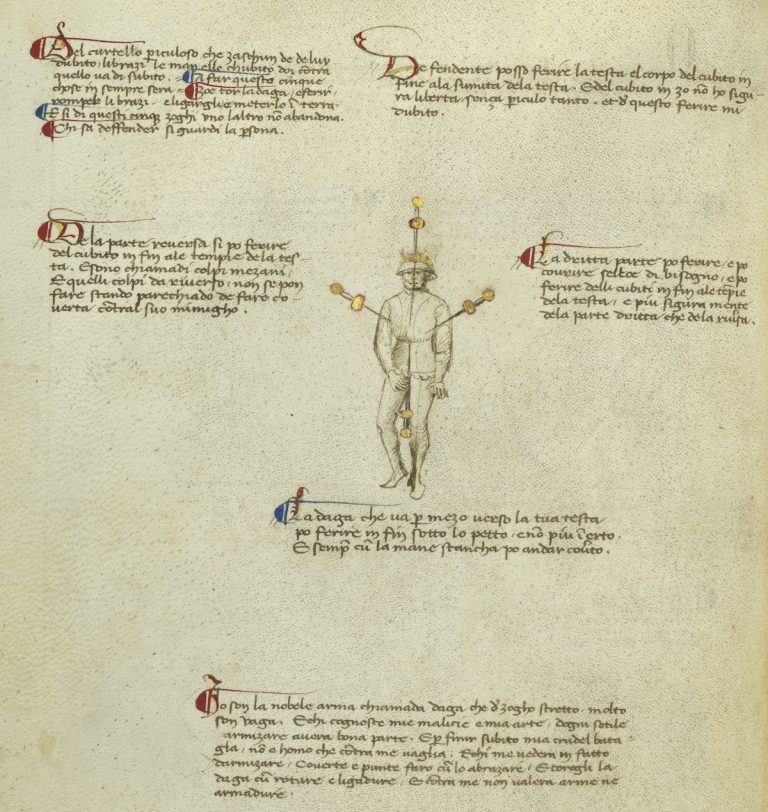 Del cortello piculoso che zaschun de de luy
dubito. li brazi. le man elle chubito doy contra
quello va di subito. A far questo cinque
chose in sempre sera.
Zoe tor la daga, e ferir
rompelo li brazi. e ligargli e meterlo in terra.
E si di questi cinque zoghi uno laltro no abandona.
Chi sa deffender si guardi la persona.
De fendente posso ferire la testa el corpo del cubito in
fine a la sumita dela testa. E del cubito in zo no ho sigu-
ra liberta senza piculo tanto. et de questo ferire mi
dubito.
De la parte reversa si po ferire
del cubito in fin ale tempie de la tes
ta. E sono chiamadi colpi mezani.
E quelli colpi da riverso, non se pon
fare stando parechiado de fare co
verta contra al suo inimigho.
La dritta parte po ferire, e po
covrire sel ce di bisogno, e po
ferire delli cubiti in fin ale tempie
dela testa, e piu sigura mente
dela parte dritta che de la riversa.
La daga che va per mezo verso la tua testa
po ferire in fin sotto lo petto, e no piu in erto.
E sempre cum la mane stancha po andar coverto.
Io son la nobele arma chiamada daga che de zogho stretto molto
son vaga. E chi cognosce mie malicie e mia arte, dogni sotile
armizare avera bona parte. E per finir subito mia crudel bata-
glia, no e homo che contra me vaglia. E chi me vedera in fatto
darmizare, Coverte e punte faro cum lo abrazare. E torogli la
daga cum roture e ligadure. E contra me non valera arme ne
armadure.